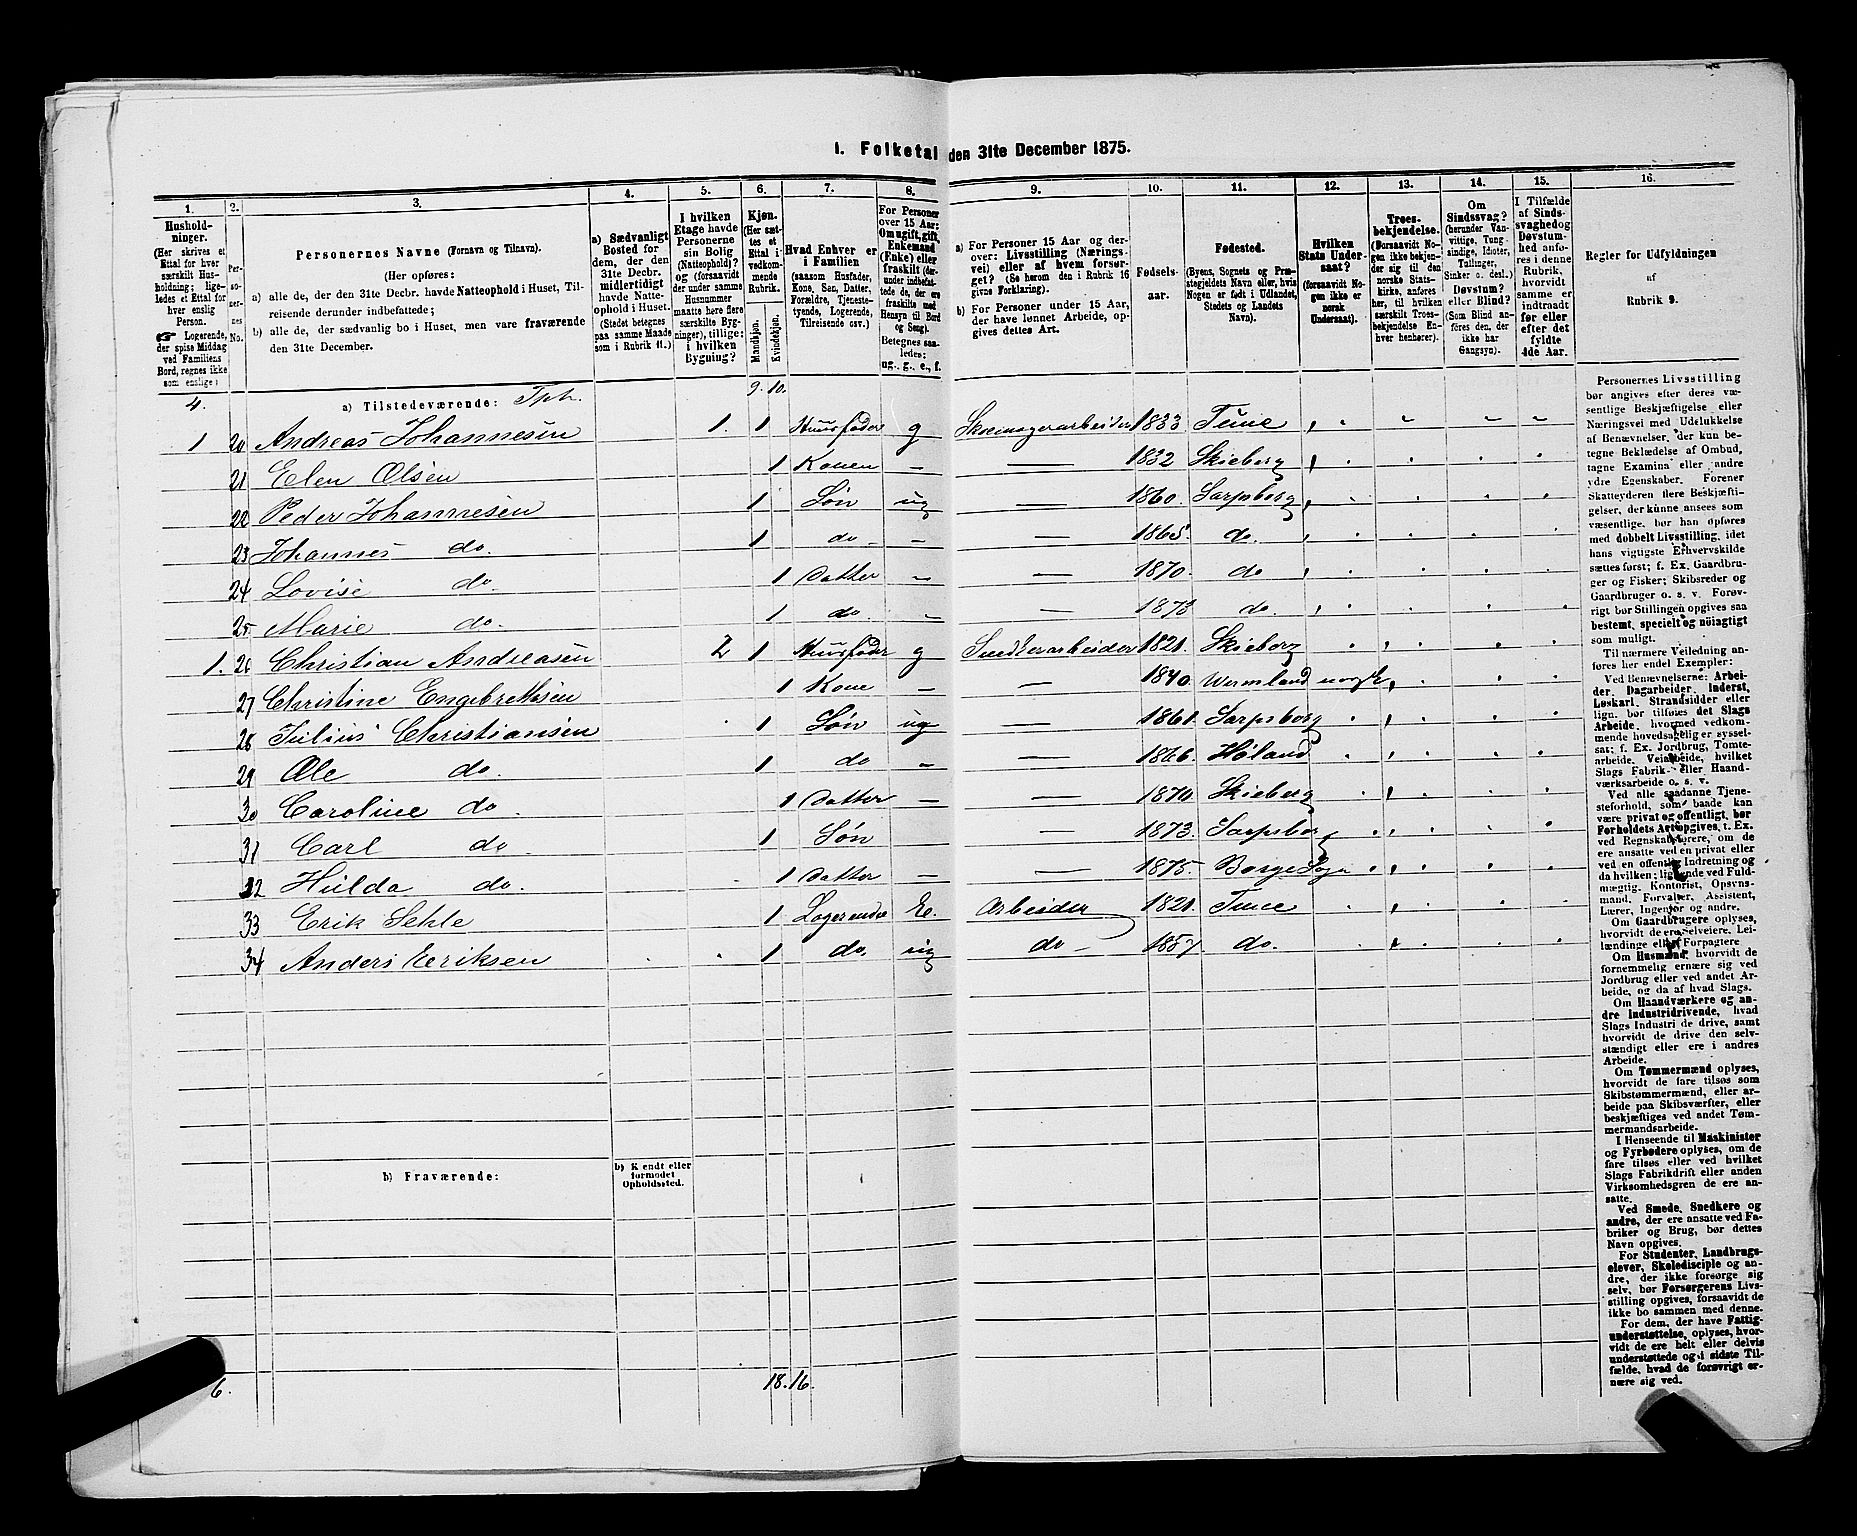 1. Folketal den 31te December 1875.
1. 2. 3. 4. 5. 6. 7. 8. 9. 10. 11. 12. 13. 14. 15. 16.
Husholdninger. (Her skrives et Ettal for hver særskilt Husholdning; ligeledes et Ettal for hver enslig Person. ☞ Logerende, der spise Middag ved Familiens Bord, regnes ikke som enslige)
Personernes No.
Personernes Navne (Fornavn og Tilnavn).
(Her opføres:
a) alle de, der den 31te Decbr. havde Natteophold i Huset, Tilreisende derunder indbefattede;
b) alle de, der sædvanlig bo i Huset, men vare fraværende den 31te December.
a) Sædvanligt Bosted for dem, der den 31te Decbr. midlertidigt havde Natteophold i Huset. (Stedet betegnes paa samme Maade som i Rubrik 11.)
I hvilken Etage havde Personerne sin Bolig (Natteophold)? (forsaavidt der under samme Husnummer maatte høre flere særskilte Bygninger), tillige: i hvilken Bygning?
Kjøn. (Her sættes et Ettal i vedkommende Rubrik.
Mandkjøn. Kvindekjøn.
Hvad Enhver er i Familien (saasom Husfader, Kone, Søn, Datter, Forældre, Tjenestetyende, Logerende, Tilreisende osv.)
For Personer over 15 Aar: Om ugift, gift, Enkemand (Enke) eller fraskilt (derunder indbefattede de, der ere fraskilte med Hensyn til Bord og Seng). Betegnes saaledes: ug., g., e., f.
a) For Personer 15 Aar og derover: Livsstilling (Næringsvei) eller af hvem forsørget? (Se herom den i Rubrik 16 givne Forklaring).
b) For Personer under 15 Aar, der have lønnet Arbeide, opgives dettes Art.
Fødselsaar.
Fødested. (Byens, Sognets og Præstegjeldets Navn eller, hvis Nogen er født i Udlandet, Stedets og Landets Navn).
Hvilken Stats Undersaat? (forsaavidt Nogen ikke er norsk Undersaat).
Troesbekjendelse. (Forsaavidt Nogen ikke bekjender sig til den norske Statskirke, anføres her, til hvilken særskilt Troesbekjendelse Enhver henhører).
Om Sindssvag? (herunder Vanvittige, Tungsindige, Idioter, Tullinger, Sinker o. desl.) Døvstum? eller Blind? (Som Blind anføres den, der ikke har Gangsyn).
I Tilfælde af Sindssvaghed og Døvstumhed anføres i denne Rubrik, hvorvidt samme er indtraadt før eller efter det fyldte 4de Aar.
Regler for Udfyldningen af Rubrik 9.
4. a) Tilstedeværende: Tph. 9. 10.
1 20 Andreas Johannesen 1. 1 Huusfader g Skomagerarbeider 1833 Tune
21 Elen Olsen 1 Konen — — 1832 Skieberg
22 Peder Johannesen 1 Søn ug — 1860. Sarpsborg
23 Johannes do. 1 do — — 1865. do.
24 Lovise do. 1 Datter — — 1870. do
25. Marie do. 1 do. — — 1873 do.
1. 26 Christian Andreasen 2 1 Huusfader g Snedkerarbeider 1821. Skieberg
27 Christine Engebretsen 1 Kone — — 1840. Wermland norsk
28 Julius Christiansen 1 Søn ug — 1861. Sarpsborg
29 Ole do. 1 do — — 1866. Høland
30 Caroline do 1 Datter — — 1870. Skieberg
31 Carl do 1 Søn — 1873. Sarpsborg
32 Hulda do. 1 Datter — — 1875. Borge Sogn
33 Erik Sehle 1 Logerende E. Arbeider 1821. Tune
34 Anders Eriksen 1 do. ug do — 1857. do.
b) Fraværende: b) Kjendt eller formodet Opholdssted.
6. 18. 16.
Personernes Livsstilling
bør angives efter deres væ-
sentlige Beskjæftigelse eller
Næringsvei med Udelukkelse
af Benævnelser, der kun be-
tegne Beklædelse af Ombud,
tagne Examina eller andre
ydre Egenskaber. Forener
Skatteyderen flere Beskjæfti-
gelser, der kunne ansees som
væsentlige, bør han opføres
med dobbelt Livsstilling, idet
hans vigtigste Erhvervskilde
sættes først; f. Ex. Gaardbru-
ger og Fisker; Skibsreder og
Gaardbruger o. s. v. Forøv-
rigt bør Stillingen opgives saa
bestemt, specielt og nøiagtigt
som muligt.
Til nærmere Veiledning an-
føres her endel Exempler:
Ved Benævnelserne: Arbei-
der, Dagarbeider, Inderst,
Løskarl, Strandsidder eller
lign. bør tilføies det Slags
Arbeide, hvormed vedkom-
mende hovedsagelig er syssel-
sat; f. Ex. Jordbrug, Tomte-
arbeide, Veiarbeide, hvilket
Slags Fabrik- eller Haand-
værksarbeide o. s. v.
Ved alle saadanne Tjene-
steforhold, som baade kan
være privat og offentligt, bør
Forholdets Art opgives, t. Ex.
ved Regnskabsførere, om de
ere ansatte ved en privat eller
ved en offentlig Indretning og
da hvilken; lignende ved Fuld-
mægtig, Kontorist, Opsyns-
mand, Forvalter, Assistent,
Lærer, Ingeniør og andre.
Om Gaardbrugere oplyses,
hvorvidt de ere Selveiere, Lei-
lændinge eller Forpagtere
Om Husmænd, hvorvidt de
fornemmelig ernære sig ved
Jordbrug eller ved andet Ar-
beide, og da af hvad Slags.
Om Haandværkere og an-
dre Industridrivende, hvad
Slags Industri de drive, samt
hvorvidt de drive den selv-
stændigt eller ere i andres
Arbeide.
Om Tømmermænd oplyses,
hvorvidt de fare tilsøs som
Skibstømmermænd, eller ar-
beide paa Skibsværfter, eller
beskjæftiges ved andet Tøm-
mermandsarbeide.
I Henseende til Maskinister
og Fyrbødere oplyses, om de
fare tilsøs eller ved hvilket
Slags Fabrikdrift eller anden
Virksomhedsgren de ere an-
satte.
Ved Smede, Snedkere og
andre, der ere ansatte ved Fa-
briker og Brug, bør dettes
Navn opgives.
For Studenter, Landbrugs-
elever, Skoledisciple og an-
dre, der ikke forsørge sig
selv, bør Forsørgerens Livs-
stilling opgives, forsaavidt de
ikke bo sammen med denne.
For dem, der have Fattig-
understøttelse, oplyses, hvor-
vidt de ere helt eller delvis
understøttede og i sidste Til-
fælde, hvad de forøvrigt er-
nære sig ved.